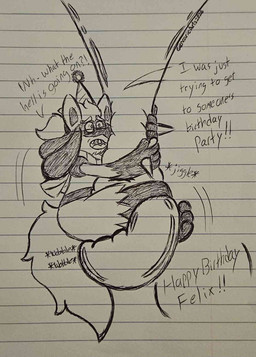 Uhh - what the
hell is going on?!
I was just
trying to get
to someone's
birthday
party!!
*jiggle*
*wobble*
*wobble*
Happy Birthday
Felix!!